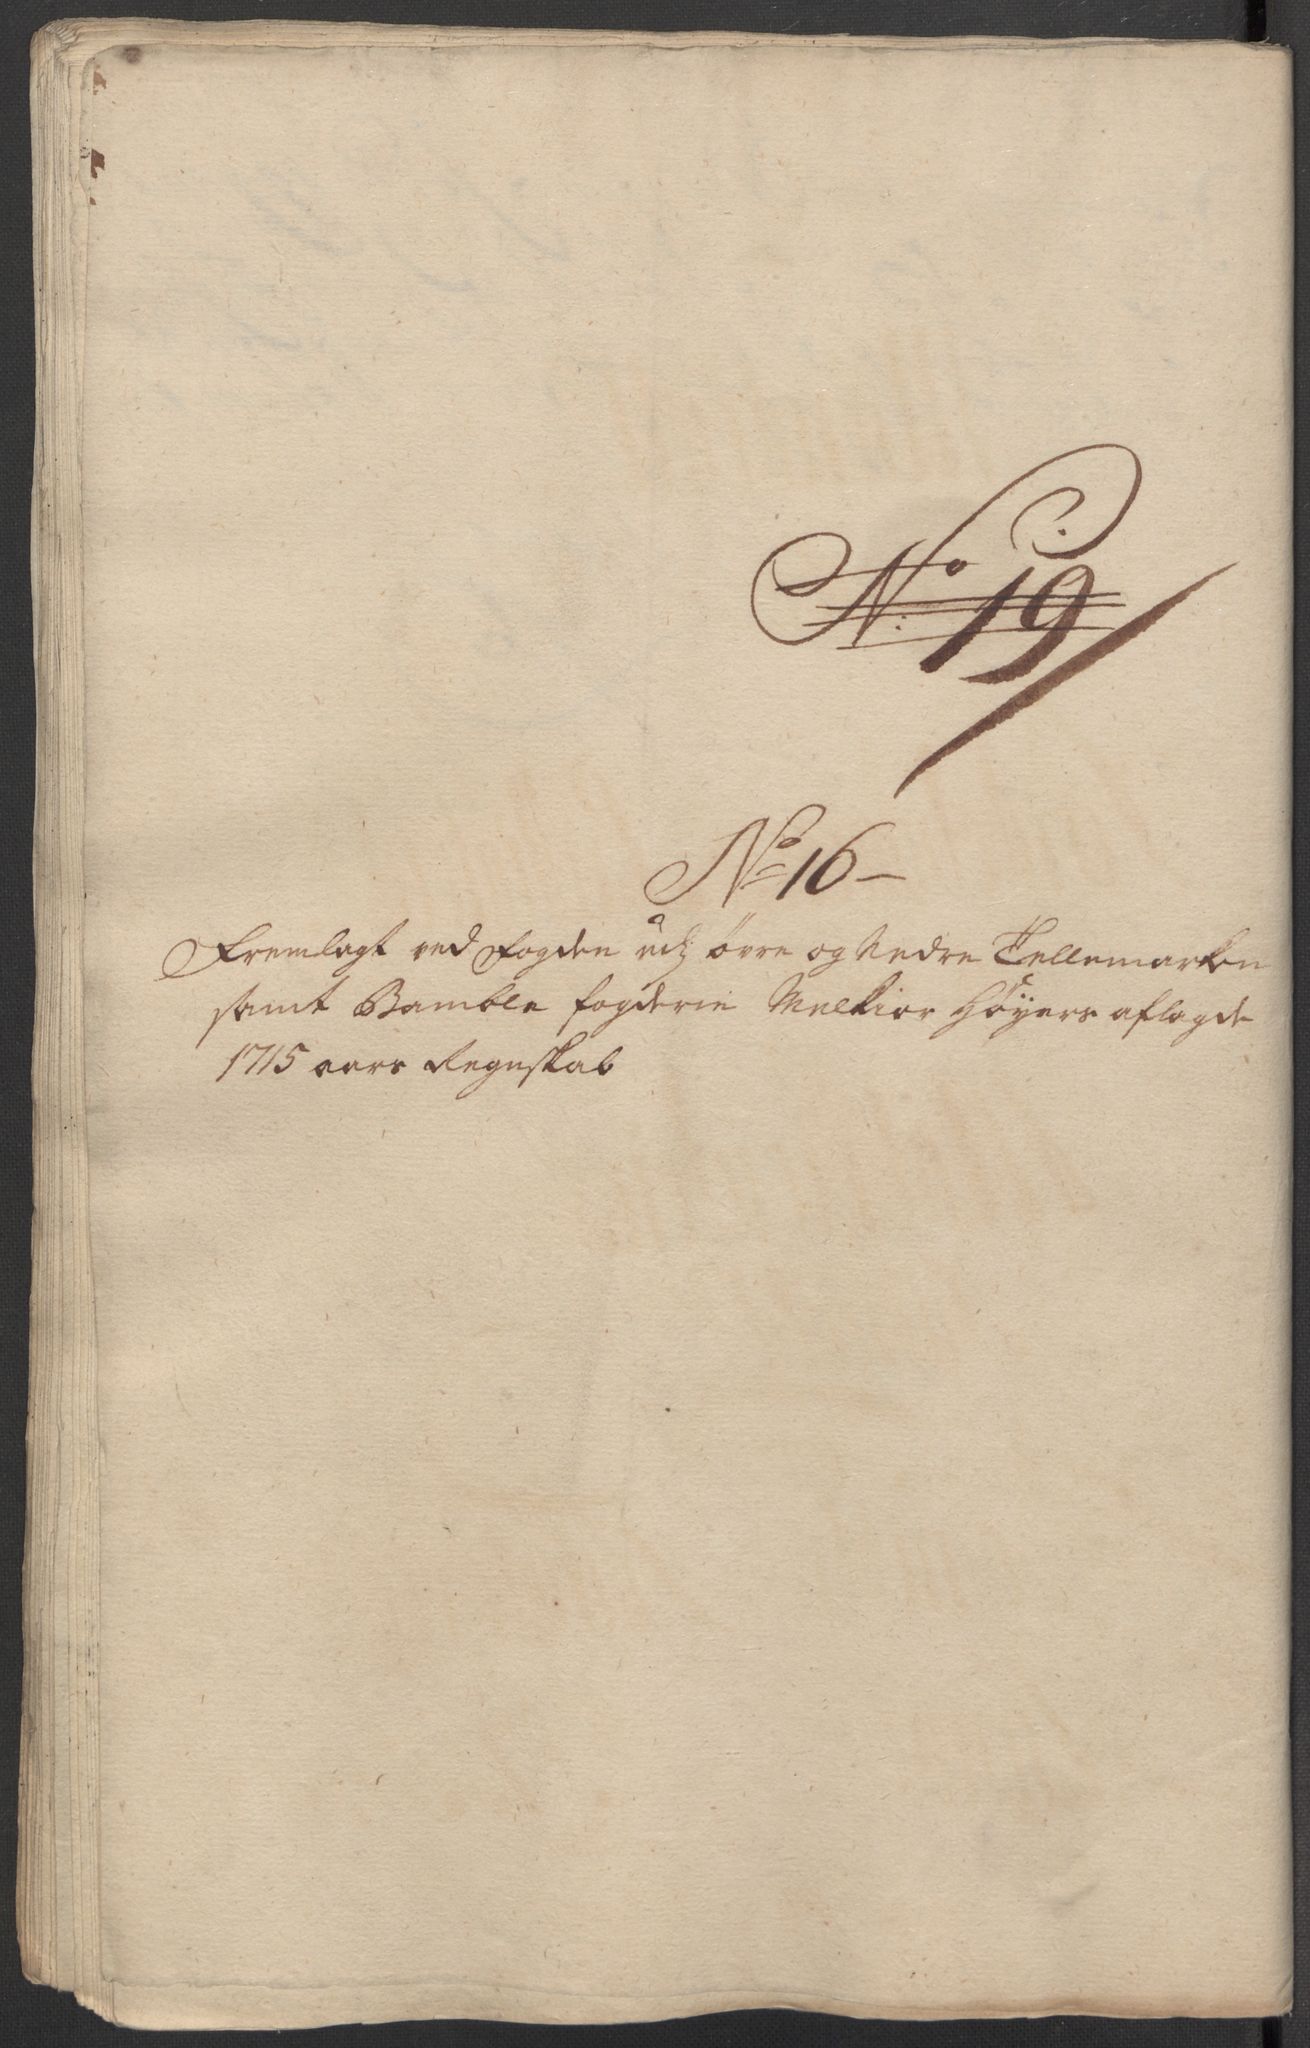 No: 19
No 16 –
Fremlagt ved Fogden udj øvre og Nedre Tellemarken
samt Bamble fogderie Melkior Høyers aflagde
1715 aars Regnskab